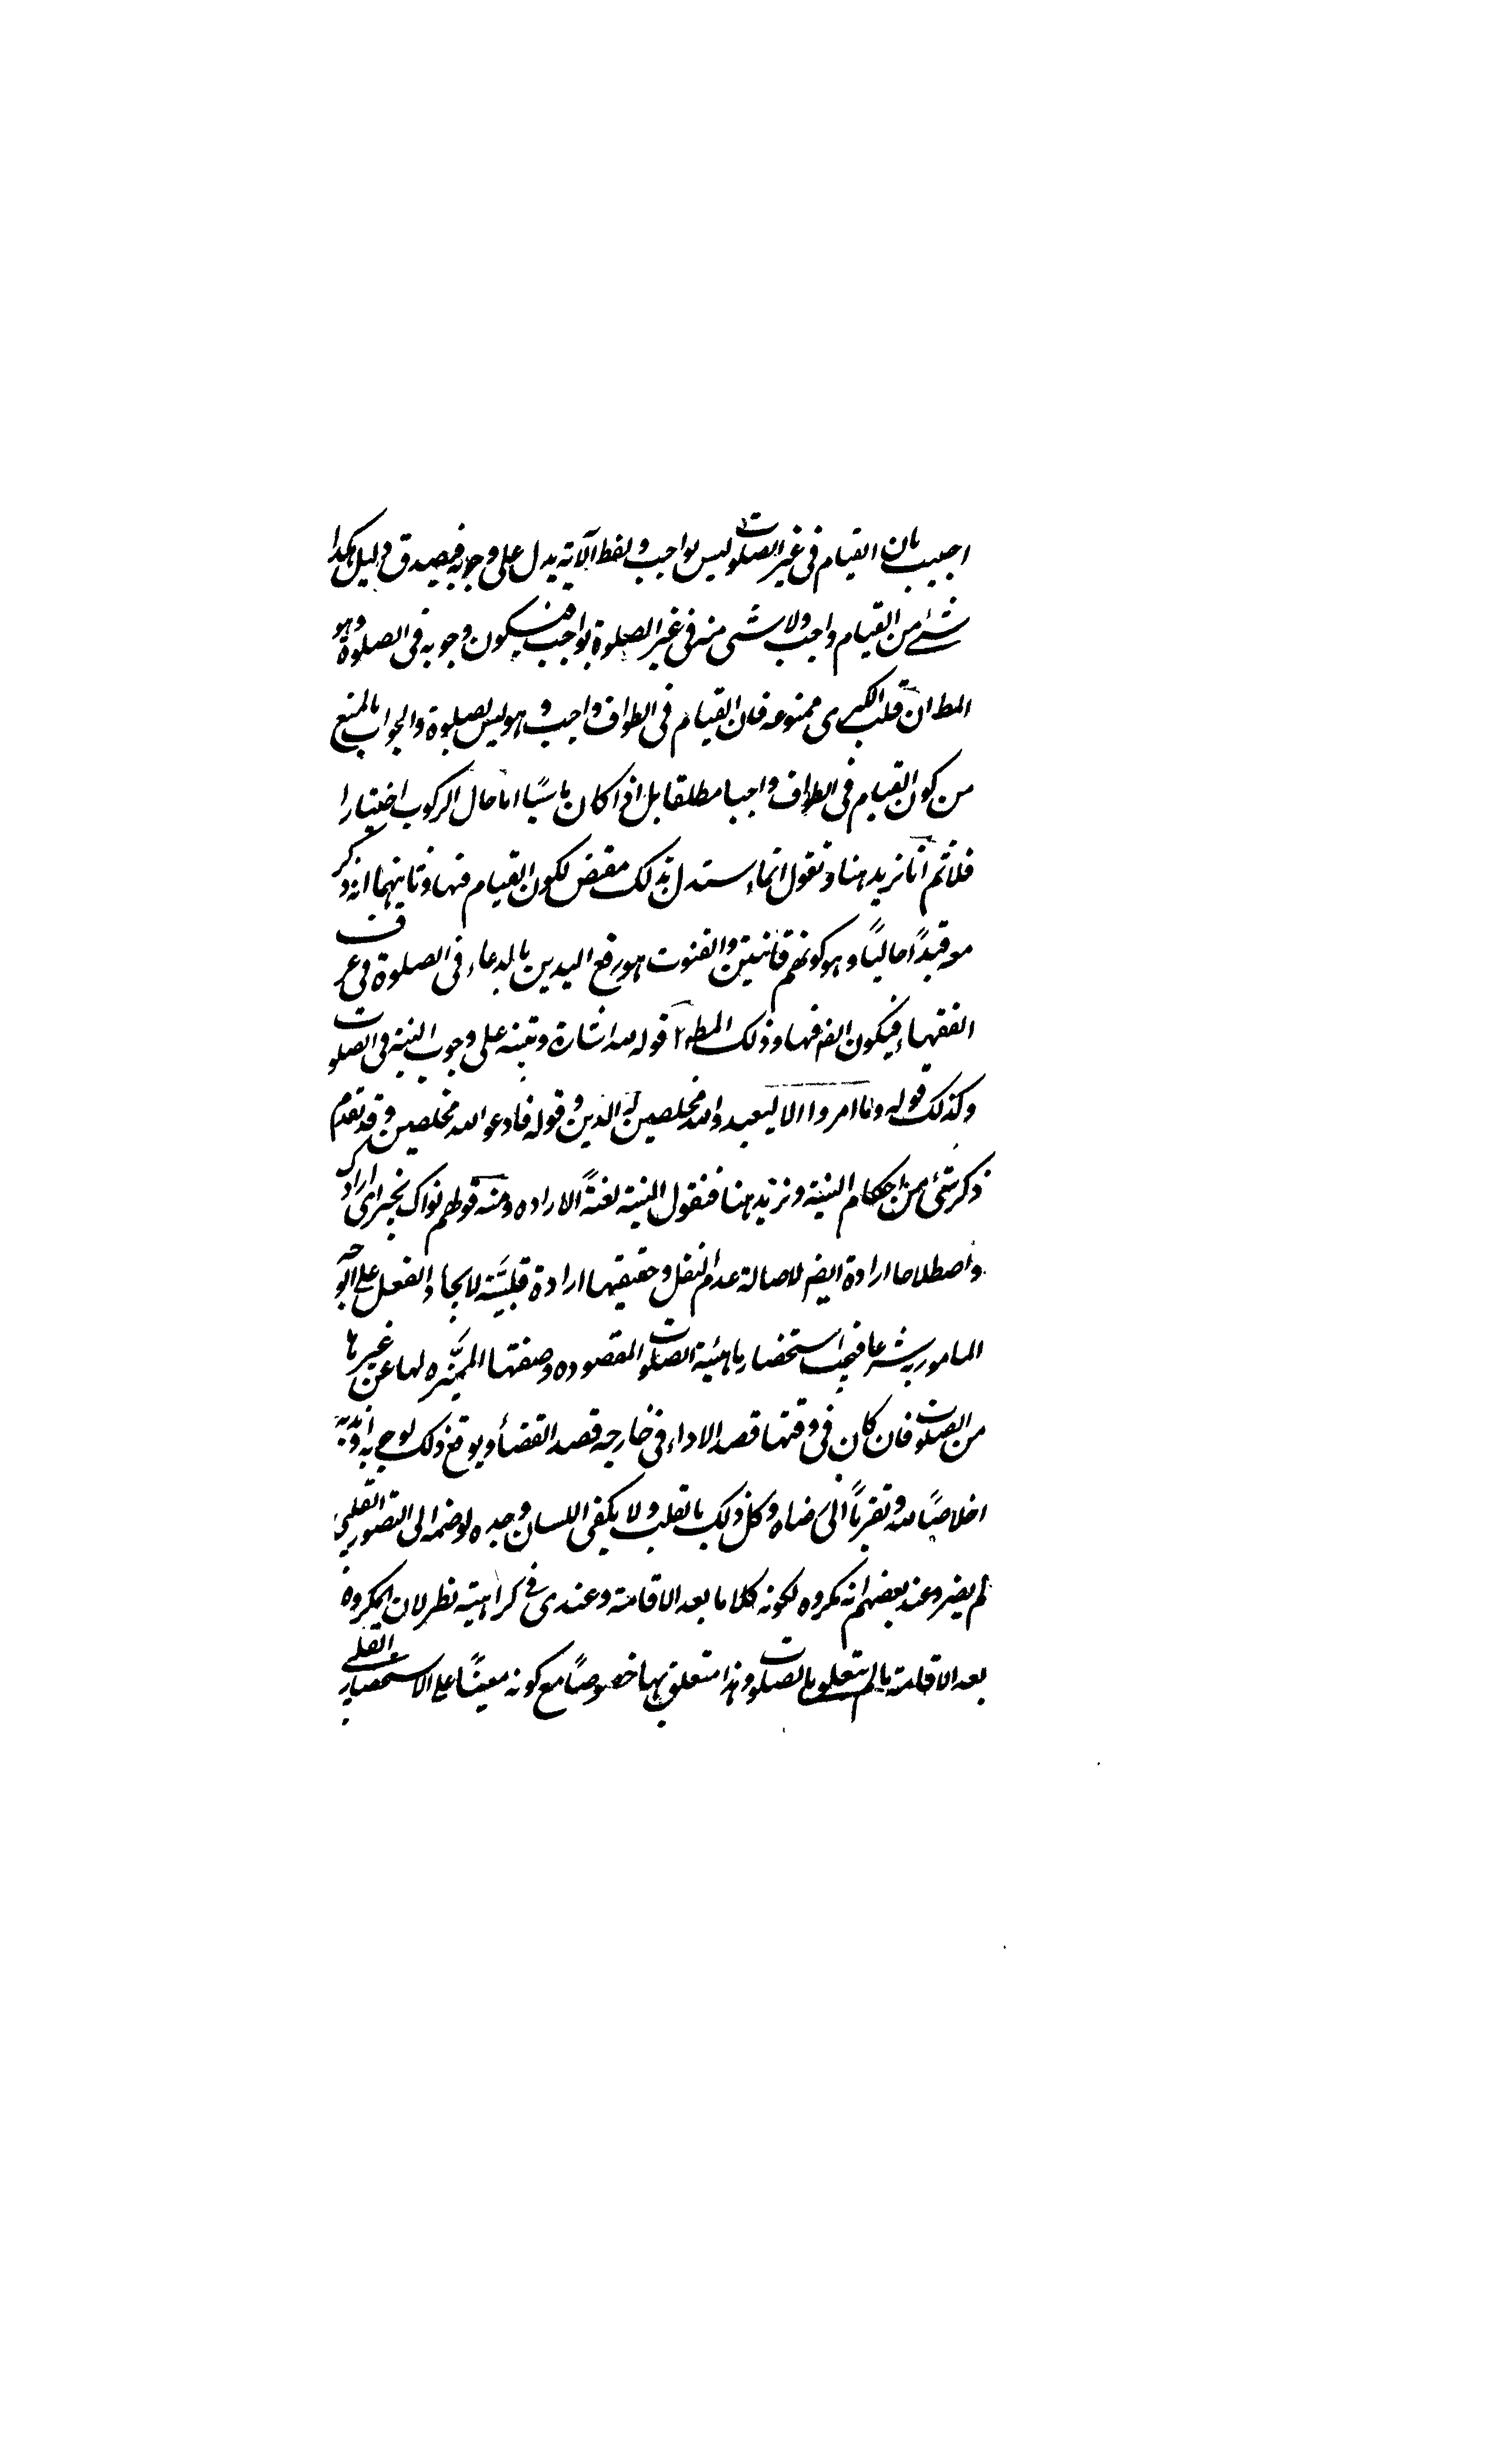 اجيب بان القيام في غير الصلوت ليس بواجب ولفظ الآية يدل على وجوبه فيصدق دليل هكذا
شئ من القيام واجب ولا شئ منه في غير الصلوة بواجب فيكون وجوبه في الصلوة وهو
المط ان قلت الكبرى ممنوعه فان القيام في الطواف واجب وهو ليس بصلوة والجواب بالمنع
من كون القيام في الطواف واجبا مطلقا بل اذا كان ماشيًا اما حال الركوب اختيارا
فلا ثم انا نزيد هنا ونقول انما استدل بذلك مقتض لكون القيام فيها وثانيهما انه ذكر
معه قيدًا حاليًا وهو كونهم قانتين والقنوت هو رفع اليدين بالدعاء في الصلوة في عرف
الفقهاء فيكون ايضر فيها وذلك المط ٢ قوله لله اشارة وتنبيه على وجوب النية في الصلوت
وكذلك قوله وما امروا الا ليعبدوا الله مخلصين له الدين وقوله فادعوا الله مخلصين وقد تقدم
ذكر شئ من احكام النية ونزيد هنا فنقول النية لغةً الاراده ومنه قولهم نواك بخير اى ارادك
واصطلاحا ارادة ايضر لاصالة عدم النقل وحقيقتها ارادة قلبيَّة لايجاد الفعل على الوجه
المامور به شرعا فيجب استحضار ماهية الصلوت المقصوده وصفتها المميّزه لها عن غيرها
من الصلوت فان كان في وقتها قصد الاداء وفي خارجه قصد القضأ ويوقع ذلك لوجوبه او ندبه
اخلاصًا لله وتقربًا الى رضاه وكل ذلك بالقلب ولا يكفى اللسان وحده لو ضمه الى التصور القلبي
لم يضر وعند بعضهم انه مكروه لكونه كلاما بعد الاقامة وعندى في كراهيته نظر لان المكروه
بعد الاقامة ما لم يتعلق بالصلوت وهذا متعلق بها خصوصًا مع كونه معينًا على الاستحضار القلبي